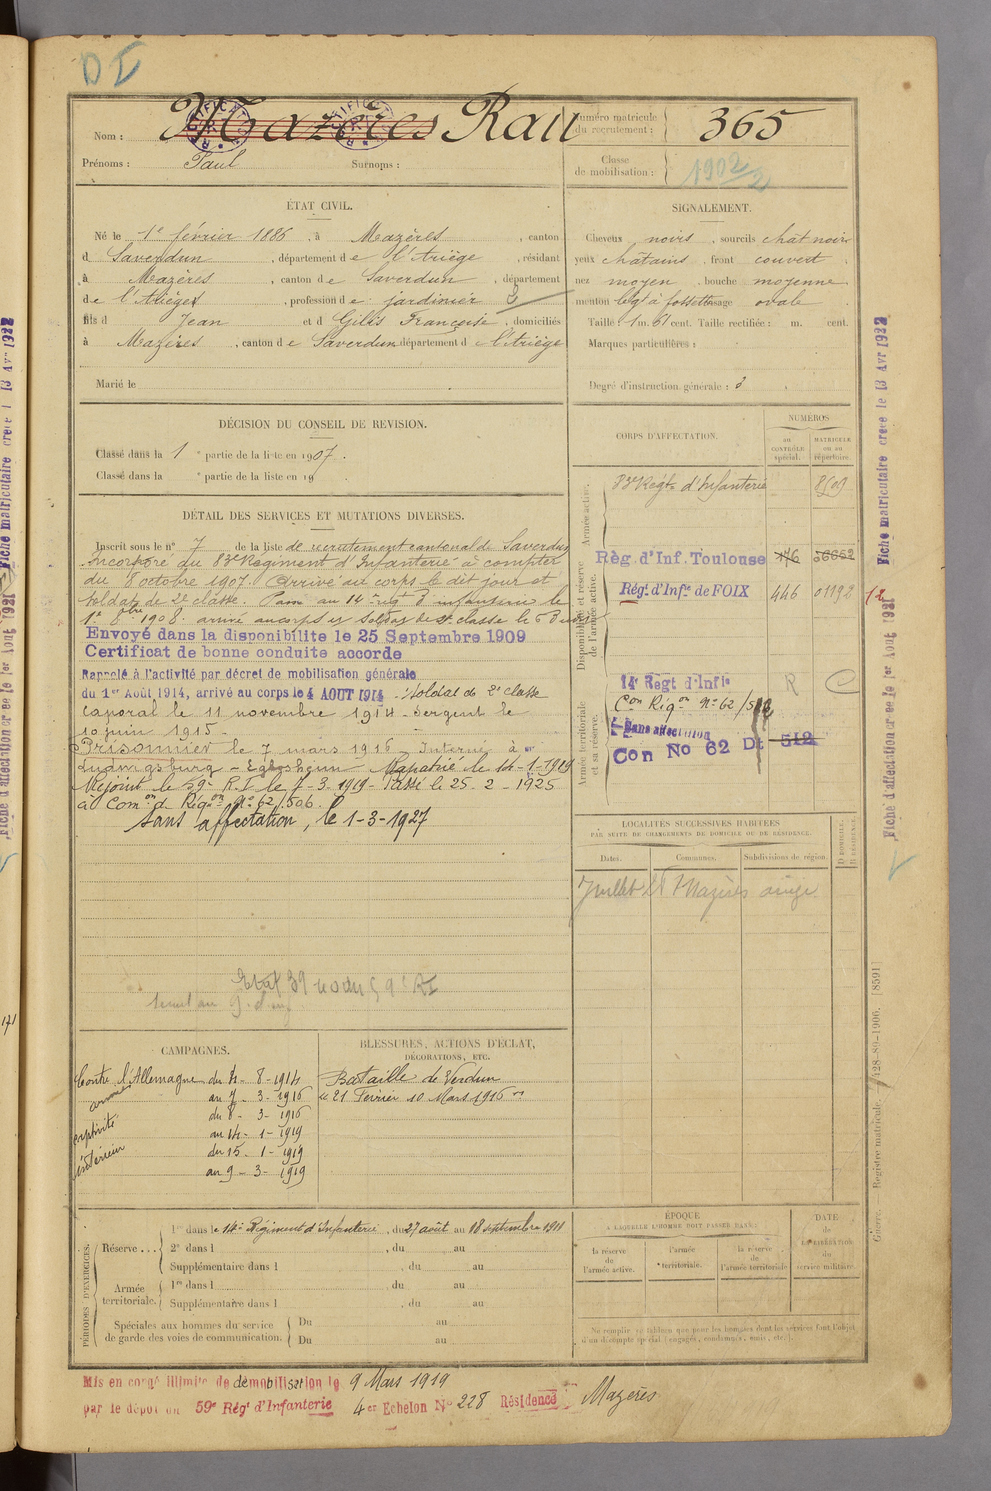 DI
Nom : Mazères Rau
Prénoms : Paul Surnoms :
Numéro matricule du recrutement : 365
Classe de mobilisation : 1902
ÉTAT CIVIL.
Né le 1er février 1886, à Mazères, canton
d Saverdun, département de l'Ariège, résidant
à Mazères, canton de Saverdun, département
de l'Ariège, profession de jardinier
fils d Jean et d Gilis Françoise, domiciliés
à Mazères, canton de Saverdun département de l'Ariège
Marié le
SIGNALEMENT.
Cheveux noirs, sourcils chat noir
yeux chatains, front couvert
nez moyen, bouche moyenne
menton à fossette visage ovale
Taille : 1 m. 61 cent. Taille rectifiée : m. cent.
Marques particulières :
Degré d'instruction générale : 3
DÉCISION DU CONSEIL DE REVISION.
Classé dans la 1e partie de la liste en 1907.
Classé dans la e partie de la liste en 19
DÉTAIL DES SERVICES ET MUTATIONS DIVERSES.
Inscrit sous le n° 7 de la liste de recrutement cantonal de Saverdun
Incorporé au 83e Régiment d'Infanterie à compter
du 8 octobre 1907. Arrivé au corps le dit jour et
soldat de 2e classe. Passé au 14e régt d'infanterie le
1er 8bre 1908. arrivé au corps et soldat de 2e classe le
Envoyé dans la disponibilite le 25 Septembre 1909
Certificat de bonne conduite accorde
Rappelé à l'activité par décret de mobilisation générale
du 1er Août 1914, arrivé au corps le 4 AOUT 1914 - Soldat de 2e classe
Caporal le 11 novembre 1914 - Sergent le
10 juin 1915 -
Prisonnier le 7 mars 1916 - Interné à
Ludwigsburg - Eglosheim Rapatrié le 14-1-1919
Rejoint le 59e R.I le 7-3-1919 - Passé le 25-2-1925
à Comon d Rigon N° 62/506.
Sans affectation, le 1-3-1927
CORPS D'AFFECTATION.
NUMÉROS
au CONTRÔLE spécial.
MATRICULE ou au répertoire.
Armée active.
83e Régt d'Infanterie
Disponibilité et réserve de l'armée active.
Règ. d'Inf. Toulouse 176
Régt d'Infie de FOIX 446 01192 12
Armée territoriale et sa réserve.
14e Regt d'Infie R C
Con Rigon N° 62/512
Sans affectation
Con No 62 Dt 512
LOCALITÉS SUCCESSIVES HABITÉES
PAR SUITE DE CHANGEMENTS DE DOMICILE OU DE RÉSIDENCE.
Dates. Communes. Subdivisions de région.
D DOMICILE. R RÉSIDENCE.
Juillet Mazères ariège
CAMPAGNES.
Contre l'Allemagne du 4-8-1914
armées au 7-3-1916
du 8-3-1916
captivité au 14-1-1919
intérieur du 15-1-1919
au 9-3-1919
BLESSURES, ACTIONS D'ÉCLAT,
DÉCORATIONS, ETC.
Bataille de Verdun
"21 Fevrier 10 Mars 1916"
PÉRIODES D'EXERCICES.
Réserve...
1re dans le 14e Régiment d'Infanterie, du 27 août au 18 septembre 1911
2e dans l , du au
Supplémentaire dans l , du au
Armée territoriale.
1re dans l , du au
Supplémentaire dans l , du au
Spéciales aux hommes du service de garde des voies de communication.
Du au
Du au
ÉPOQUE
A LAQUELLE L'HOMME DOIT PASSER DANS
la réserve de l'armée active.
l'armée territoriale.
la réserve de l'armée territoriale
DATE de LA LIBÉRATION du service militaire.
Ne remplir ce tableau que pour les hommes dont les services font l'objet
d'un décompte spécial (engagés, condamnés, omis, etc.).
Mis en congé illimité de démobilisation le 9 Mars 1919
par le dépôt du 59e Régt d'Infanterie 4er Echelon N° 228 Résidence : Mazeres
Fiche matriculaire créée le 13 Avr 1922
Fiche d'affectation créée le 1er Août 1921
Guerre. Registre matricule. 128-80-1906. [8591]
171